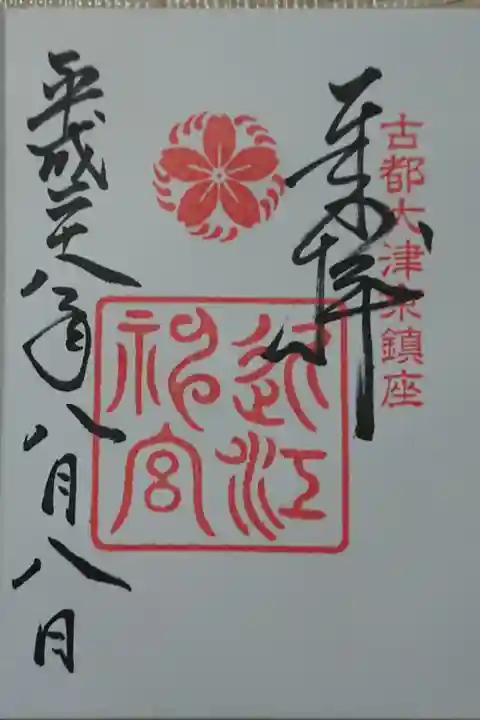 古都大津京鎮座
奉拝
近江神宮
平成二十八年八月八日